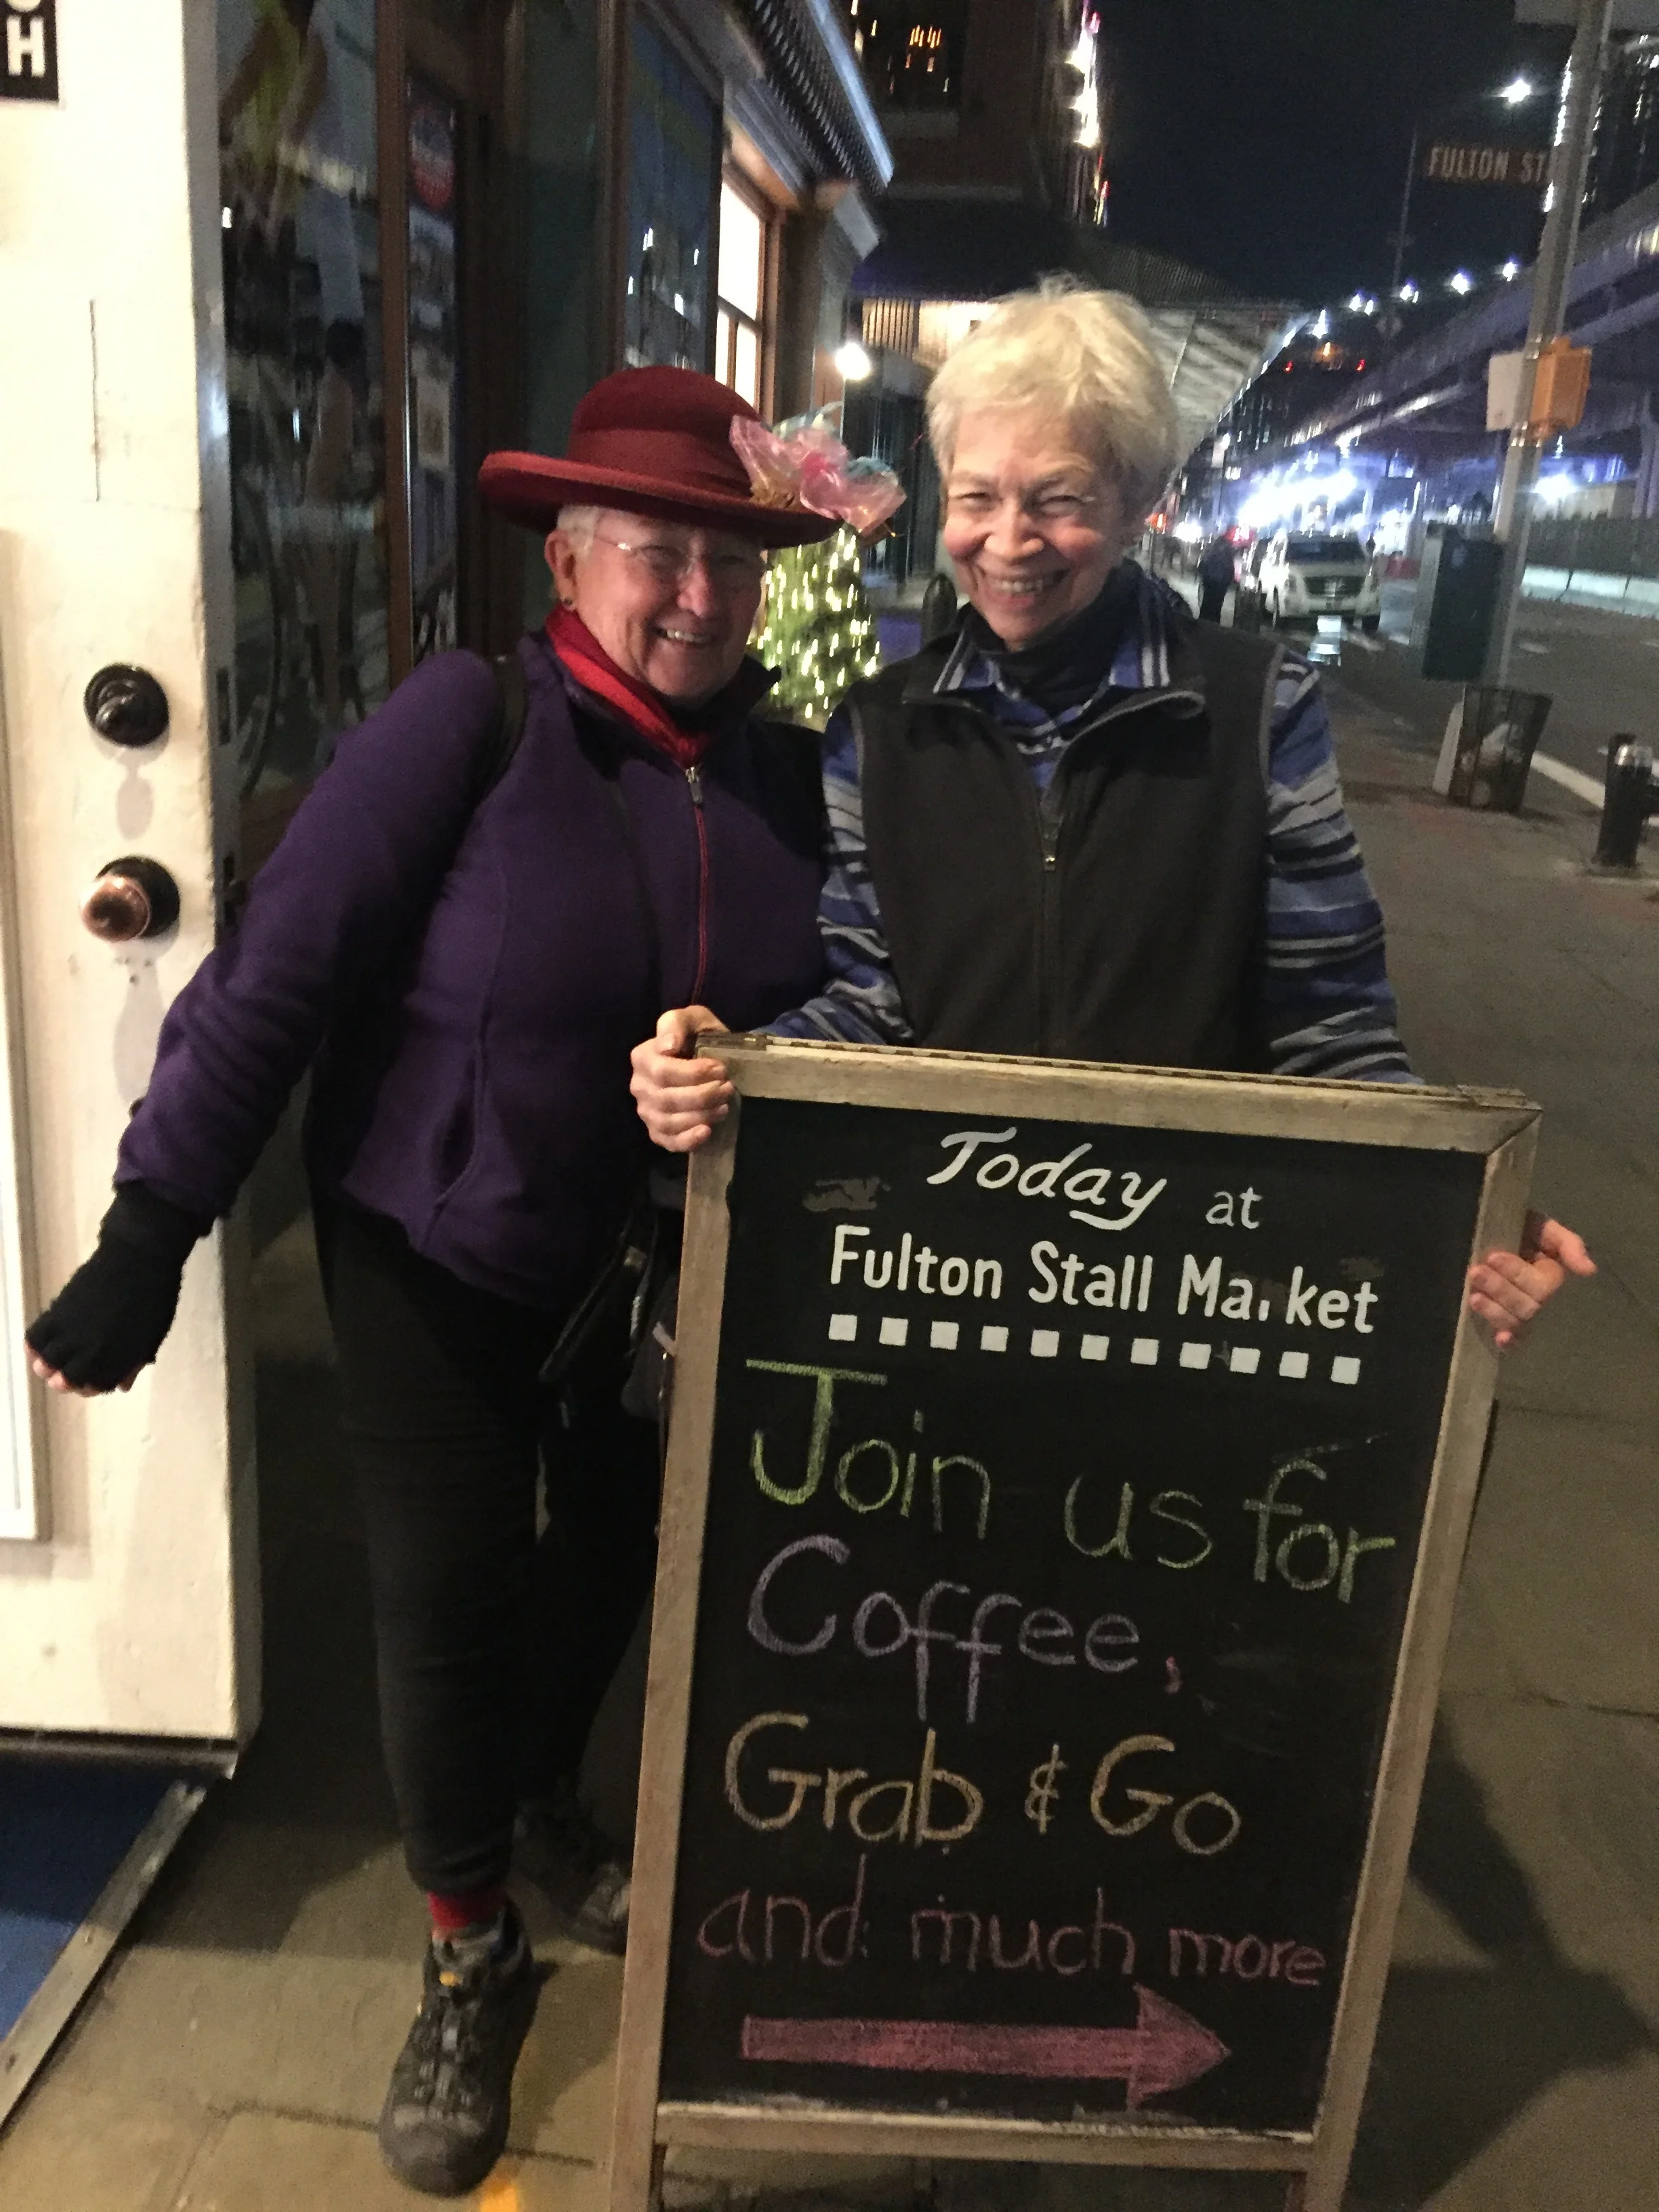 CH
FULTON ST
Today at
Fulton Stall Ma ket
Join us for
Coffee,
Grab & Go
and much more